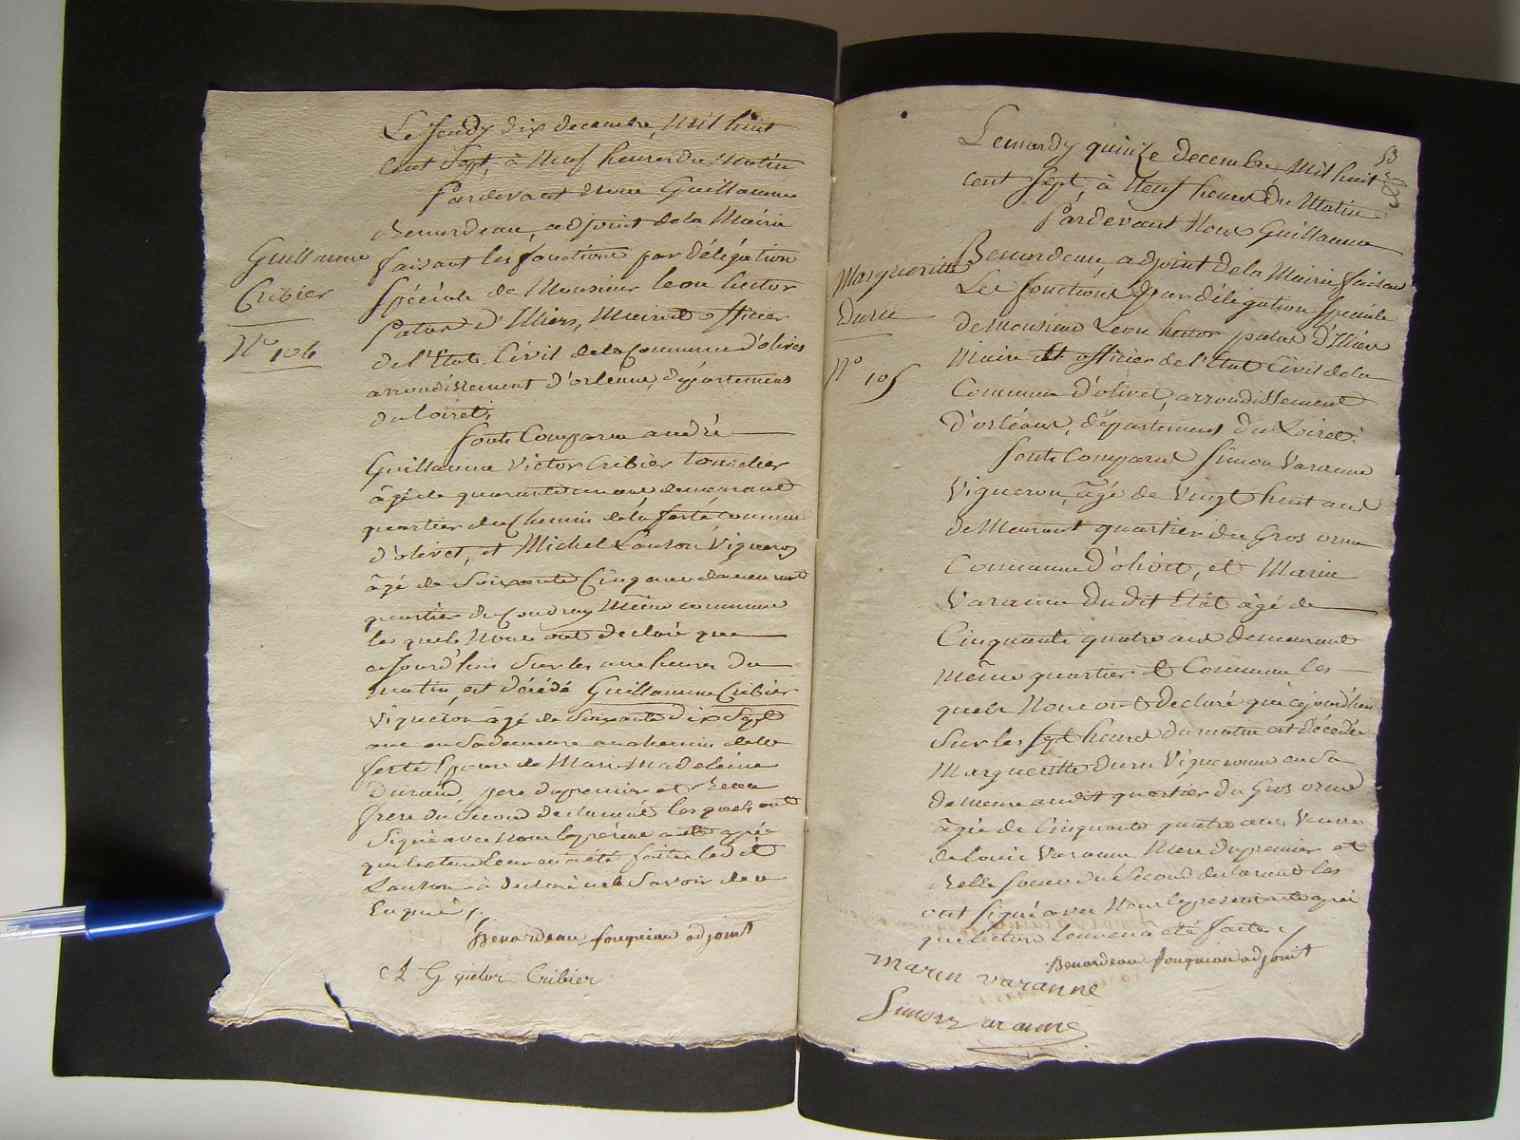 Le Jeudy dix decembre, Mil huit
cent Sept, à Neuf heures du Matin
Pardevant Nous Guillaume
Benardeau, adjoint de la Mairie
faisant les fonctions par délégation
Spéciale de Monsieur Leon hector
patas d'Illiers, Maire et officier
de l'Etat Civil de la Commune d'olivet
arrondissement d'orleans, département
du loiret;
Guillaume
Cribier
N° 106
Sont Comparu andré
Guillaume Victor Cribier tonnelier
âgé de quarante un ans demeurant
quartier du Chemin de la ferté commune
d'olivet, et Michel Lauson Vigneron
âgé de Soixante Cinq ans demeurant
quartier du Coudray Même commune
les quels Nous ont declaré que
aujourd'hui Sur les une heures du
matin, est décédé Guillaume Cribier
Vigneron âgé de Soixante dix Sept
ans en Sa demeure au chemin de la
ferté Epoux de Marie Madeleine
Durand, pere du premier et beau
frere du Second declarant les quels ont
Signé avec Nous le présent acte après
que lecture leur en a été faite led it
Lauson à declaré ne le Savoir de ce
Enquis /.
Benardeau fouqueau adjoint
A G victor Cribier
Le mardy quinze decembre Mil huit
cent Sept, à Neuf heures du Matin
Pardevant Nous Guillaume
Benardeau, adjoint de la Mairie faisant
Les fonctions par délégation Speciale
de Monsieur Leon hector patas d'Illiers
Maire et officier de l'Etat Civil de la
Commune d'olivet, arrondissement
d'orléans, département du Loiret;
Margueritte
Duru
N° 105
Sont Comparus Simon Varanne
Vigneron, âgé de Vingt huit ans
deMeurant quartier du Gros orme
Commune d'olivet, et Marin
Varanne du dit Etât âgé de
Cinquante quatre ans demeurant
même quartier et Commune les
quels Nous ont declaré qu'aujourd'hui
Sur les Sept heures du matin est décédée
Margueritte duru Vigneronne en Sa
demeure audit quartier du Gros orme
âgée de Cinquante quatre ans Veuve
de louis Varanne Mere du premier et
Belle soeur du Second declarant les
ont Signé avec Nous le present acte après
que lecture leur en a été faite /
Benardeau fouqueau adjoint
marin varanne
Simon varanne